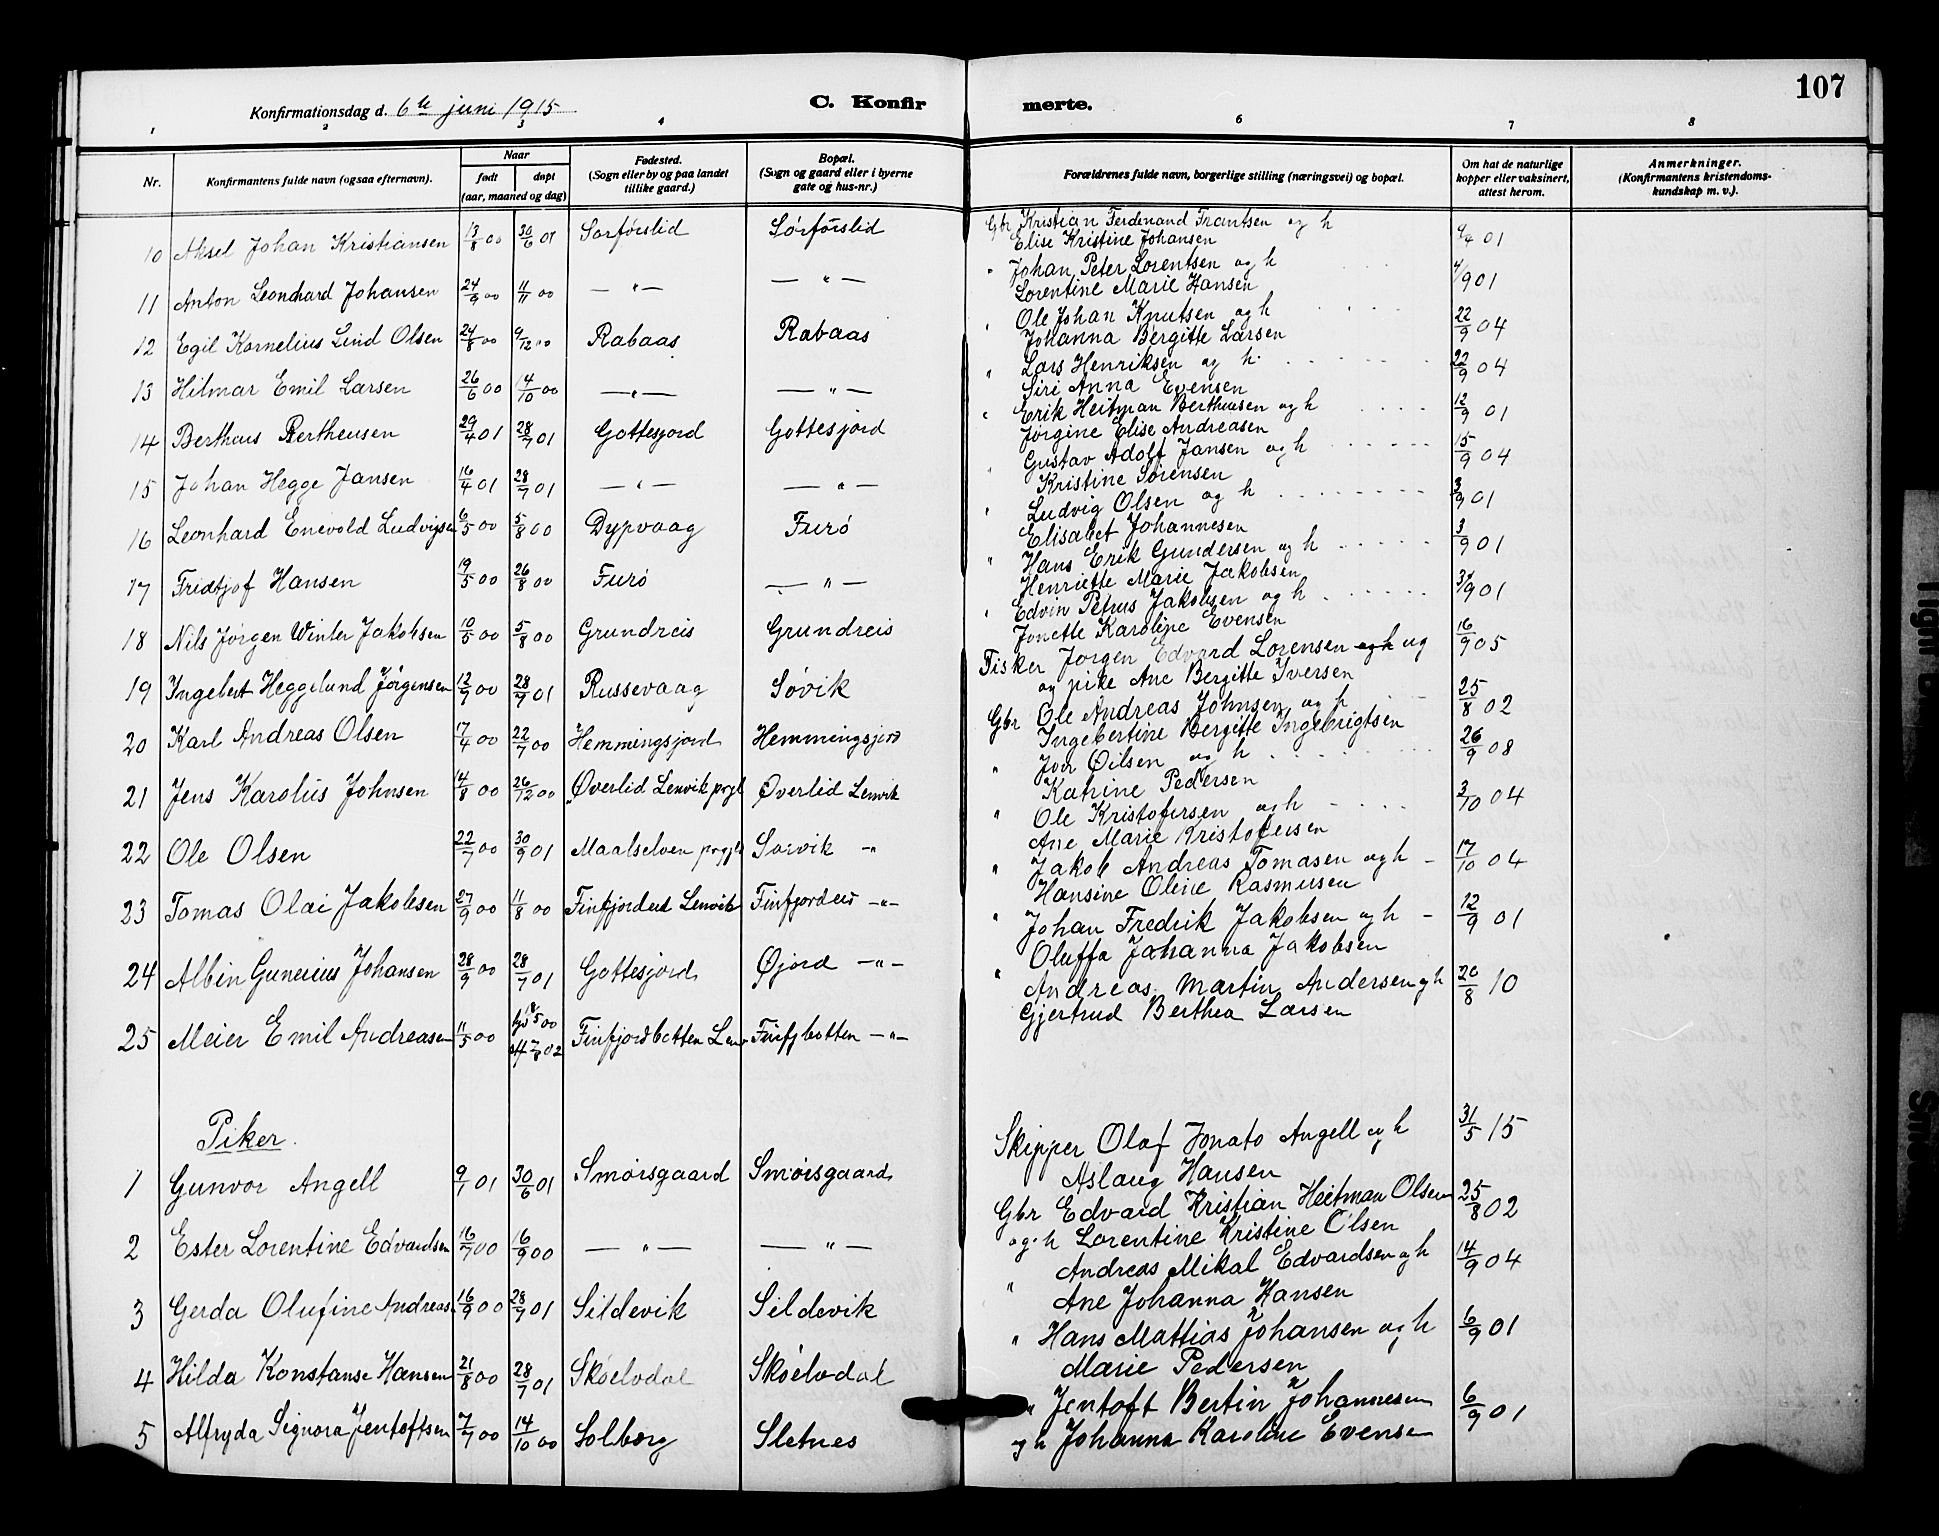 107
Konfirmationsdag d. 6te juni 1915
C. Konfir merte.
1 2 3 4 5 6 7 8
Nr.
Konfirmantens fulde navn (ogsaa efternavn).
Naar
født døpt
(aar, maaned og dag)
Fødested.
(Sogn eller by og paa landet
tillike gaard.)
Bopæl.
(Sogn og gaard eller i byerne
gate og hus-nr.)
Forældrenes fulde navn, borgerlige stilling (næringsvei) og bopæl.
Om hat de naturlige
kopper eller vaksinert,
attest herom.
Anmerkninger.
(Konfirmantens kristendoms-
kundskap m. v.).
10 Aksel Johan Kristiansen 13/8 00 30/6 01 Sørførslid Sørførslid Gbr Kristian Ferdenand Frantsen og h
Elise Kristine Johansen
11 Anton Leonhard Johansen 24/9 00 11/11 00 — " — — " — " Johan Peter Lorentsen og h 4/9 01
Lorentine Marie Hansen
12 Egil Kornelius Lind Olsen 24/8 00 9/12 00 Rabaas Rabaas " Ole Johan Knutsen og h 22/9 04
Johanna Bergitte Larsen
13 Hilmar Emil Larsen 26/6 00 14/10 00 — " — — " — " Lars Henriksen og h. 22/9 04
Siri Anna Evensen
14 Berthaus Bertheusen 29/4 01 28/7 01 Gottesjord Gottesjord " Erik Heitman Bertheusen og h 12/9 01
Jørgine Elise Andreasen
15 Johan Hegge Jansen 16/4 01 28/7 01 — " — — " — " Gustav Adolf Jansen og h 15/9 04
Kristine Sørensen
16 Leonhard Enevold Ludvigsen 6/5 00 5/8 00 Dypvaag Furø " Ludvig Olsen og h 3/9 01
Elisabet Johannesen
17 Fridtjof Hansen 19/5 00 26/8 00 Furø — " — " Hans Erik Gundersen og h 3/9 01
Henriette Marie Jakobsen
18 Nils Jørgen Winter Jakobsen 10/5 00 5/8 00 Grundreis Grundreis " Edvin Petrus Jakobsen og h 3/9 01
Jonette Karoline Evensen
19 Ingebert Heggelund Jørgensen 12/9 00 28/9 01 Russevaag Søvik Fisker Jørgen Edvard Lorensen og h og 16/9 05
og pike Ane Bergitte Iversen
20 Karl Andreas Olsen 17/4 00 22/7 00 Hemmingsjord Hemmingsjord Gbr Ole Andreas Johnsen og h 25/8 02
Ingebertine Bergitte Ingebrigtsen
21 Jens Karolius Johnsen 14/8 00 26/12 00 Øverlid Lenvik prgl Øverlid Lenvik " 26/9 08
Katrine Pedersen
22 Ole Olsen 22/7 00 30/9 01 Maalselven prgjl Sørvik —"— " Ole Kristofersen og h 3/10 04
Ane Marie Kristofersen
23 Tomas Olai Jakobsen 27/9 00 11/8 00 Finfjordeid Lenvik Finfjordeid —"— " Jakob Andreas Tomasen og h 17/10 04
Hansine Oline Rasmusen
24 Albin Gunerius Johansen 28/9 00 28/7 01 Gottesjord Øjord —"— " Johan Fredrik Jakobsen og h 12/9 01
Oluffa Johanna Jakobsen
25 Meier Emil Andreasen 11/5 00 hjd 18/5 00 st 7/8 02 Finfjordbotten Lenv Finfjbotten —"— " Andreas Martin Andersen og h 20/8 10
Gjertrud Berthea Larsen
Piker.
1 Gunvor Angell 9/1 01 30/6 01 Smørsgaard Smørsgaard Skipper Olaf Jonato Angell og h 31/5 15
Aslaug Hansen
2 Ester Lorentine Edvardsen 16/7 00 16/9 00 — " — — " — Gbr Edvard Kristian Heitman Olsen 25/8 02
og h Lorentine Kristine Olsen
3 Gerda Olufine Andreas 16/9 00 28/7 01 Sildevik Sildevik " Andreas Mikal Edvardsen og h 14/9 04
Ane Johanna Hansen
4 Hilda Konstanse Hansen 21/8 00 28/7 01 Skøelvdal Skøelvdal " Hans Mattias Johansen og h 6/9 01
Marie Pedersen
5 Alfryda Signora Jentoftsen 7/7 00 14/10 00 Solborg Sletnes " Jentoft Bertin Johannesen 6/9 01
og h Johanna Karoline Evensen